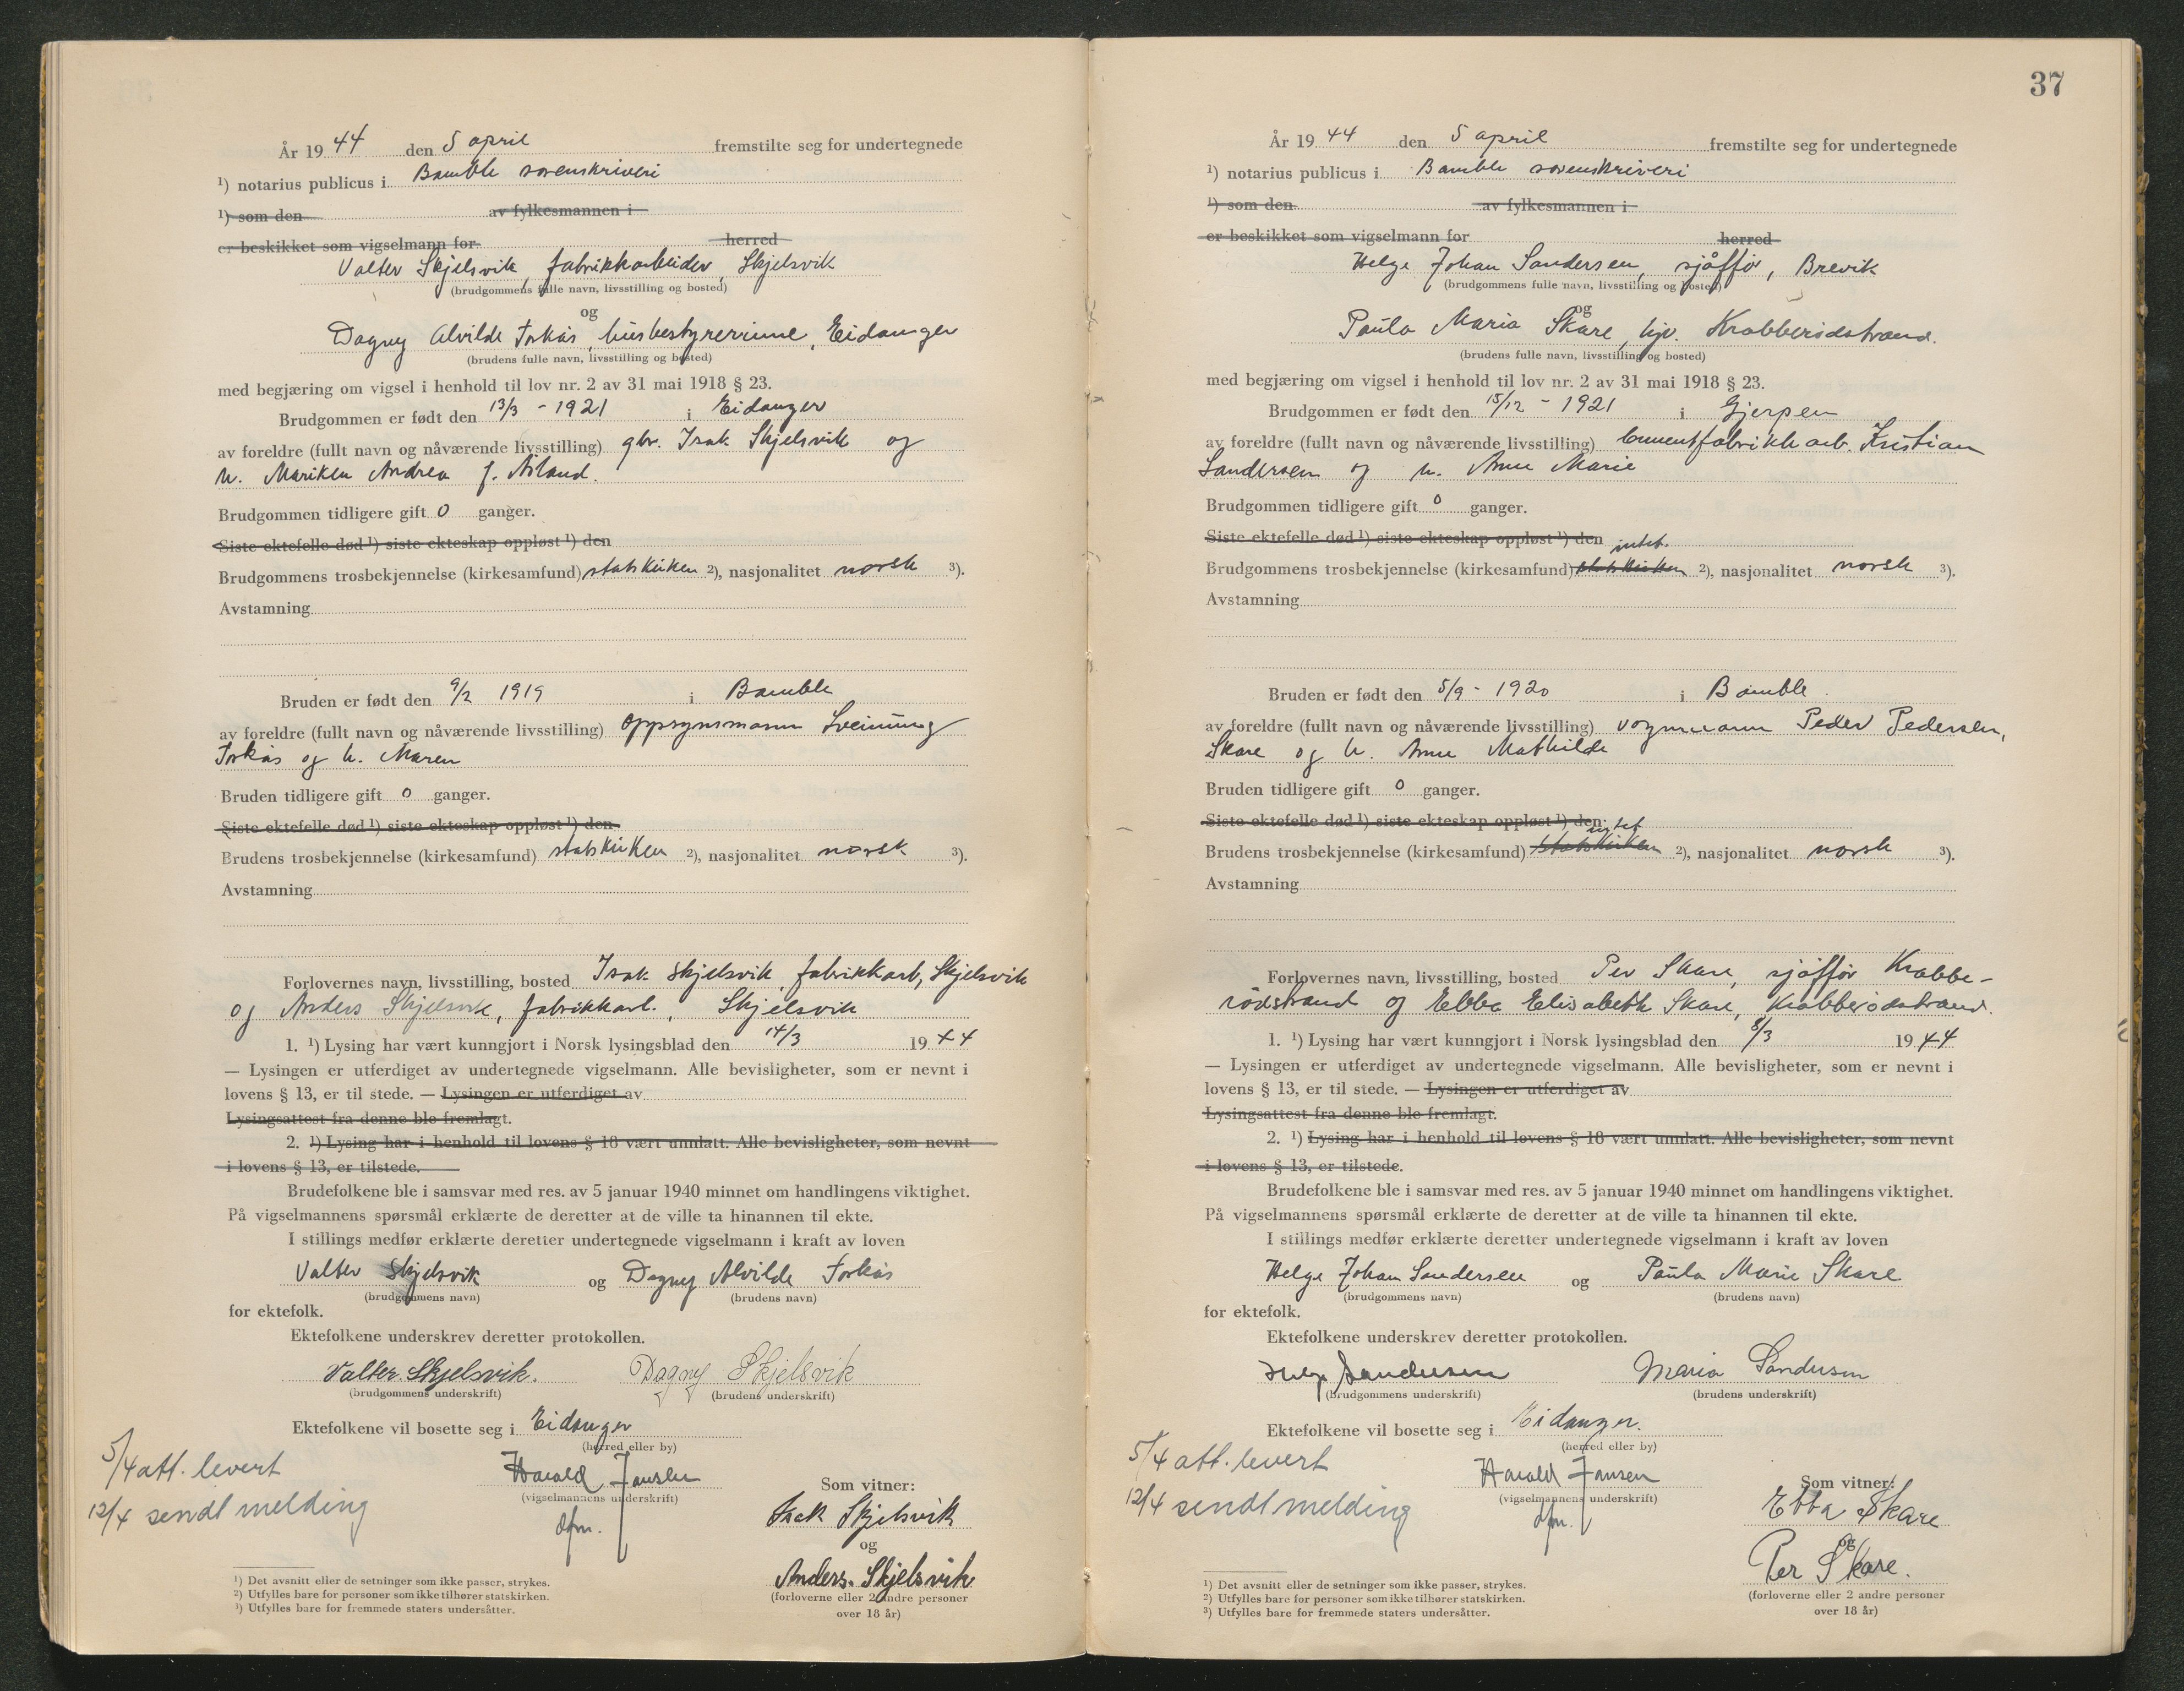 År 19 44 den 5 april fremstilte seg for undertegnede
¹) notarius publicus i Bamble sorenskriveri
¹) som den av fylkesmannen i
er beskikket som vigselmann for herred
Valter Skjelsvik, fabrikkarbeider, Skjelsvik
(brudgommens fulle navn, livsstilling og bosted)
og
Dagny Alvilde Forkås, husbestyrerinne, Eidanger
(brudens fulle navn, livsstilling og bosted)
med begjæring om vigsel i henhold til lov nr. 2 av 31 mai 1918 § 23.
Brudgommen er født den 13/3 - 1921 i Eidanger
av foreldre (fullt navn og nåværende livsstilling) gbr. Isak Skjelsvik og
h. Mariken Andrea f. Åsland.
Brudgommen tidligere gift 0 ganger.
Siste ektefelle død ¹) siste ekteskap oppløst ¹) den
Brudgommens trosbekjennelse (kirkesamfund) statskirken ²), nasjonalitet norsk ³).
Avstamning
Bruden er født den 9/2 1919 i Bamble
av foreldre (fullt navn og nåværende livsstilling) oppsynsmann Sveinung
Forkås og h. Maren
Bruden tidligere gift 0 ganger.
Siste ektefelle død ¹) siste ekteskap oppløst ¹) den
Brudens trosbekjennelse (kirkesamfund) statskirken ²), nasjonalitet norsk ³).
Avstamning
Forlovernes navn, livsstilling, bosted Isak Skjelsvik, fabrikkarb, Skjelsvik
og Anders Skjelsvik, fabrikkarb., Skjelsvik
1. ¹) Lysing har vært kunngjort i Norsk lysingsblad den 14/3 19 44
— Lysingen er utferdiget av undertegnede vigselmann. Alle bevisligheter, som er nevnt i
lovens § 13, er til stede. — Lysingen er utferdiget av
Lysingsattest fra denne ble fremlagt.
2. ¹) Lysing har i henhold til lovens § 18 vært unnlatt. Alle bevisligheter, som nevnt
i lovens § 13, er tilstede.
Brudefolkene ble i samsvar med res. av 5 januar 1940 minnet om handlingens viktighet.
På vigselmannens spørsmål erklærte de deretter at de ville ta hinannen til ekte.
I stillings medfør erklærte deretter undertegnede vigselmann i kraft av loven
Valter Skjelsvik og Dagny Alvilde Forkås
(brudgommens navn) (brudens navn)
for ektefolk.
Ektefolkene underskrev deretter protokollen.
Valter Skjelsvik. Dagny Skjelsvik
(brudgommens underskrift) (brudens underskrift)
Ektefolkene vil bosette seg i Eidanger
(herred eller by)
5/4 att. levert
12/4 sendt melding
Harald Jansen
(vigselmannens underskrift)
dfm.
Som vitner:
Isak Skjelsvik
og
Anders Skjelsvik
(forloverne eller 2 andre personer
over 18 år)
¹) Det avsnitt eller de setninger som ikke passer, strykes.
²) Utfylles bare for personer som ikke tilhører statskirken.
³) Utfylles bare for fremmede staters undersåtter.
37
År 19 44 den 5 april fremstilte seg for undertegnede
¹) notarius publicus i Bamble sorenskriveri
¹) som den av fylkesmannen i
er beskikket som vigselmann for herred
Helge Johan Sandersen, sjåffør, Brevik
(brudgommens fulle navn, livsstilling og bosted)
og
Paula Maria Skare, hjv. Krabberødstrand.
(brudens fulle navn, livsstilling og bosted)
med begjæring om vigsel i henhold til lov nr. 2 av 31 mai 1918 § 23.
Brudgommen er født den 15/12 - 1921 i Gjerpen
av foreldre (fullt navn og nåværende livsstilling) cementfabrikkarb. Kristian
Sandersen og h. Anne Marie
Brudgommen tidligere gift 0 ganger.
Siste ektefelle død ¹) siste ekteskap oppløst ¹) den
intet.
Brudgommens trosbekjennelse (kirkesamfund) statskirken ²), nasjonalitet norsk ³).
Avstamning
Bruden er født den 5/9 - 1920 i Bamble.
av foreldre (fullt navn og nåværende livsstilling) vognmann Peder Pedersen,
Skare og h. Anne Mathilde
Bruden tidligere gift 0 ganger.
Siste ektefelle død ¹) siste ekteskap oppløst ¹) den
intet
Brudens trosbekjennelse (kirkesamfund) statskirken ²), nasjonalitet norsk ³).
Avstamning
Forlovernes navn, livsstilling, bosted Per Skare, sjåffør Krabbe-
rødstrand og Ebba Elisabeth Skare, Krabberødstrand.
1. ¹) Lysing har vært kunngjort i Norsk lysingsblad den 8/3 19 44
— Lysingen er utferdiget av undertegnede vigselmann. Alle bevisligheter, som er nevnt i
lovens § 13, er til stede. — Lysingen er utferdiget av
Lysingsattest fra denne ble fremlagt.
2. ¹) Lysing har i henhold til lovens § 18 vært unnlatt. Alle bevisligheter, som nevnt
i lovens § 13, er tilstede.
Brudefolkene ble i samsvar med res. av 5 januar 1940 minnet om handlingens viktighet.
På vigselmannens spørsmål erklærte de deretter at de ville ta hinannen til ekte.
I stillings medfør erklærte deretter undertegnede vigselmann i kraft av loven
Helge Johan Sandersen og Paula Marie Skare
(brudgommens navn) (brudens navn)
for ektefolk.
Ektefolkene underskrev deretter protokollen.
Helge Sandersen Maria Sandersen
(brudgommens underskrift) (brudens underskrift)
Ektefolkene vil bosette seg i Eidanger.
(herred eller by)
5/4 att. levert
12/4 sendt melding
Harald Jansen
(vigselmannens underskrift)
dfm.
Som vitner:
Ebba Skare
og
Per Skare.
(forloverne eller 2 andre personer
over 18 år)
¹) Det avsnitt eller de setninger som ikke passer, strykes.
²) Utfylles bare for personer som ikke tilhører statskirken.
³) Utfylles bare for fremmede staters undersåtter.